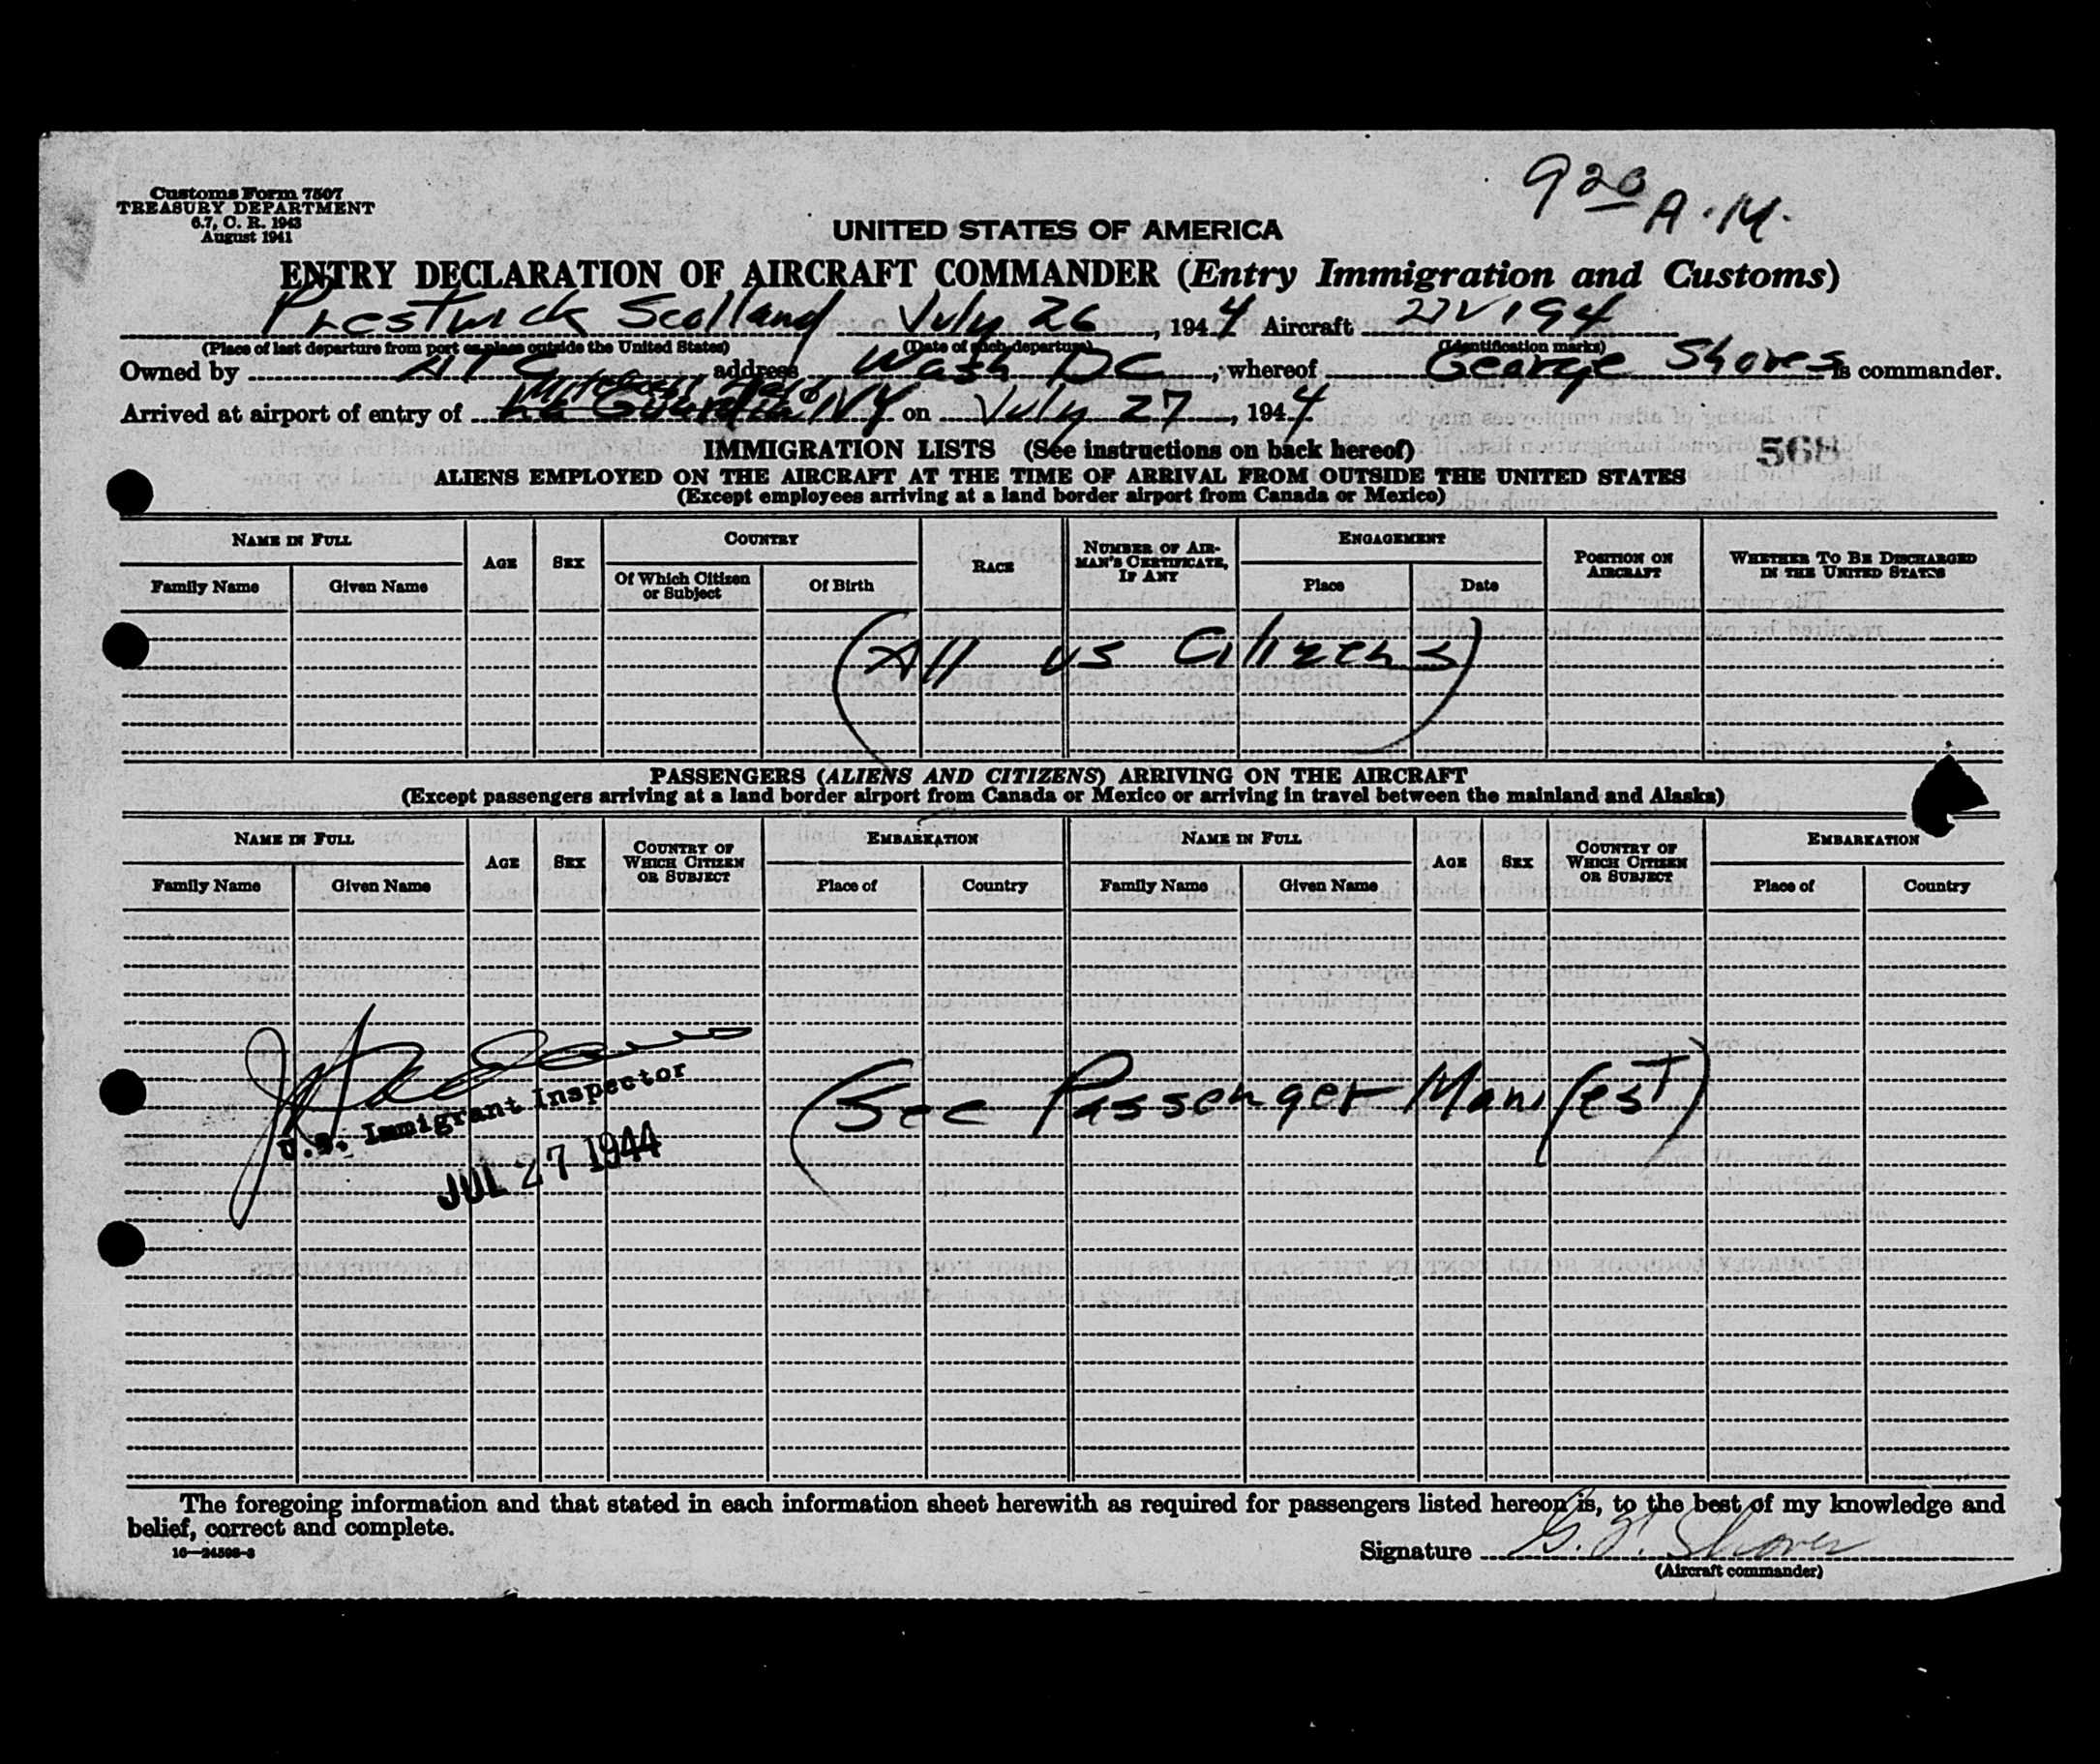 9 20 A.M.
Customs Form 7507
TREASURY DEPARTMENT
6.7, C. R. 1943
August 1941
UNITED STATES OF AMERICA
ENTRY DECLARATION OF AIRCRAFT COMMANDER (Entry Immigration and Customs)
Prestwick Scotland July 26, 1944 Aircraft
(Place of last departure from port or place outside the United States) (Date of such departure) (Identification marks)
Owned by ATC address Wash DC, whereof George Shores is commander.
Mitchell Field
Arrived at airport of entry of La Guardia NY on July 27, 1944
IMMIGRATION LISTS (See instructions on back hereof)
568
ALIENS EMPLOYED ON THE AIRCRAFT AT THE TIME OF ARRIVAL FROM OUTSIDE THE UNITED STATES
(Except employees arriving at a land border airport from Canada or Mexico)
NAME IN FULL AGE SEX COUNTRY RACE NUMBER OF AIRMAN'S CERTIFICATE, IF ANY ENGAGEMENT POSITION ON AIRCRAFT WHETHER TO BE DISCHARGED IN THE UNITED STATES
Family Name Given Name Of Which Citizen or Subject Of Birth Place Date
(All US Citizens)
PASSENGERS (ALIENS AND CITIZENS) ARRIVING ON THE AIRCRAFT
(Except passengers arriving at a land border airport from Canada or Mexico or arriving in travel between the mainland and Alaska)
NAME IN FULL AGE SEX COUNTRY OF WHICH CITIZEN OR SUBJECT EMBARKATION NAME IN FULL AGE SEX COUNTRY OF WHICH CITIZEN OR SUBJECT EMBARKATION
Family Name Given Name Place of Country Family Name Given Name Place of Country
(See Passenger Manifest)
U.S. Immigrant Inspector
JUL 27 1944
The foregoing information and that stated in each information sheet herewith as required for passengers listed hereon is, to the best of my knowledge and
belief, correct and complete.
16—24598-3
Signature G. F. Shores
(Aircraft commander)